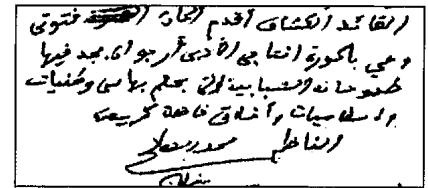 القائد الكشاف أقدم إليك فتوتي
وهي باكورة إنتاجي الأدبي أرجو أن تجد فيها
طموحات الشباب التي يحلم بها من وطنيات
وإسلاميات وأخلاق فاضلة كريمة
الناظم
محمد